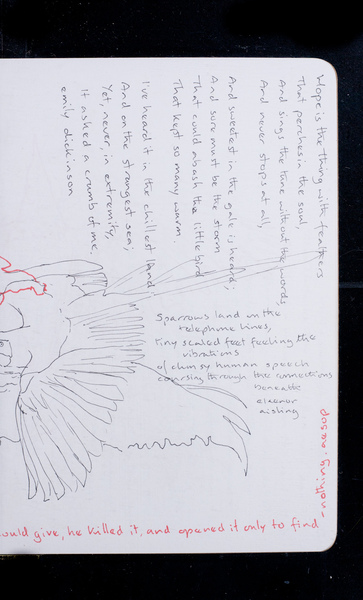 Hope is the thing with feathers
That perches in the soul,
And sings the tune without the words,
And never stops at all,
And sweetest in the gale is heard;
And sore must be the storm
That could abash the little bird
That kept so many warm.
I've heard it in the chillest land
And on the strangest sea;
Yet, never, in extremity,
It asked a crumb of me.
emily dickinson
Sparrows land on the
telephone lines,
tiny scaled feet feeling the
vibrations
of clumsy human speech
coursing through the connections
beneath
eleanor
aisling
would give, he killed it, and opened it only to find -
nothing. aesop